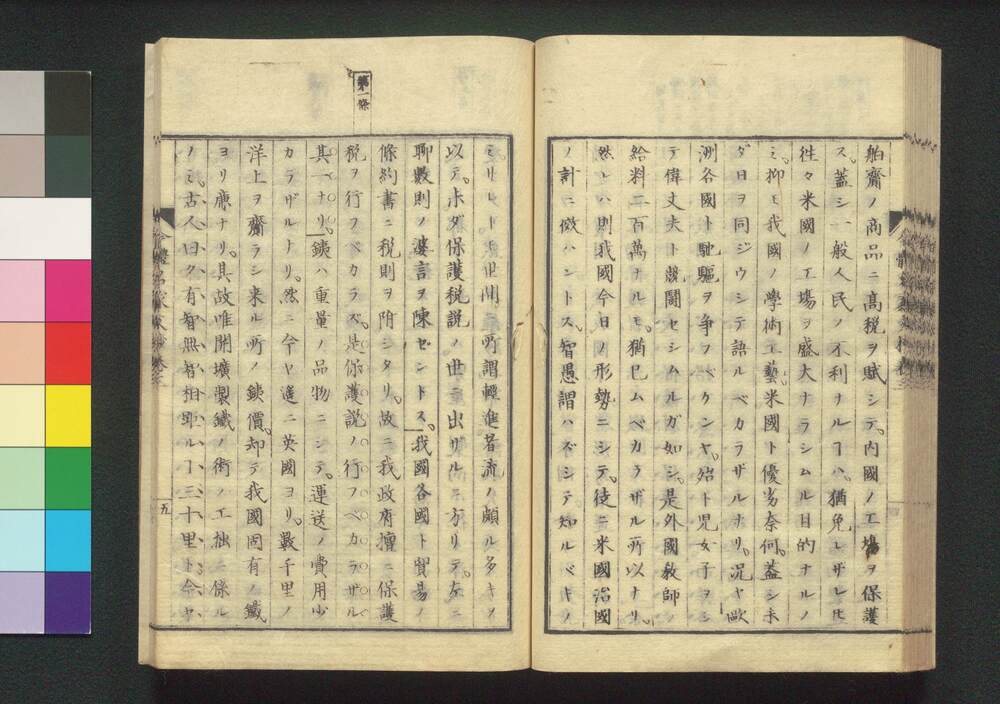 舶齎ノ商品ニ高税ヲ賦シテ。内國ノ工塲ヲ保護
ス。蓋シ一般人民ノ不利ナルヿハ。猶免レザレ𪜈
徃々米國ノ工塲ヲ盛大ナラシムル目的ナルノ
ミ。抑モ我國ノ學術工藝。米國ト優劣奈何。蓋シ未
ダ日ヲ同ジウシテ語ルベカラザルナリ。况ヤ歐
洲各國ト馳驅ヲ争フベケンヤ。殆ト児女子ヲシ
テ偉丈夫ト競鬪セシムルガ如シ。是外國敎師ノ
給料二百萬ナルモ。猶已ムベカラザル所以ナリ。
然レハ則我國今日ノ形勢ニシテ。徒ニ米國治國
ノ計ニ倣ハントス。智愚謂ハズシテ知ルベキノ
ミナレ𪜈。世間所謂輕進者流ノ頗ル多キヲ
以テ。未ダ保護税説ノ世ニ出ザルニ方リテ。左ニ
聊數則ノ婆言ヲ陳ゼントス。我國各國ト貿易ノ
第一條
條約書ニ税則ヲ附シタリ。故ニ我政府擅ニ保護
税ヲ行フベカラズ。是保護説ノ行フベカラザル
其一ナリ。鐵ハ重量ノ品物ニシテ。運送ノ費用少
カラザルナリ。然ニ今ヤ遙ニ英國ヨリ。數千里ノ
洋上ヲ齎ラシ来ル所ノ鐵價。却テ我國固有ノ鐵
ヨリ廉ナリ。其故唯開壙製鐵ノ術ノ工拙ニ係ル
ノミ。古人曰ク。有智無智相距ルヿ三十里ト。今ヤ
五